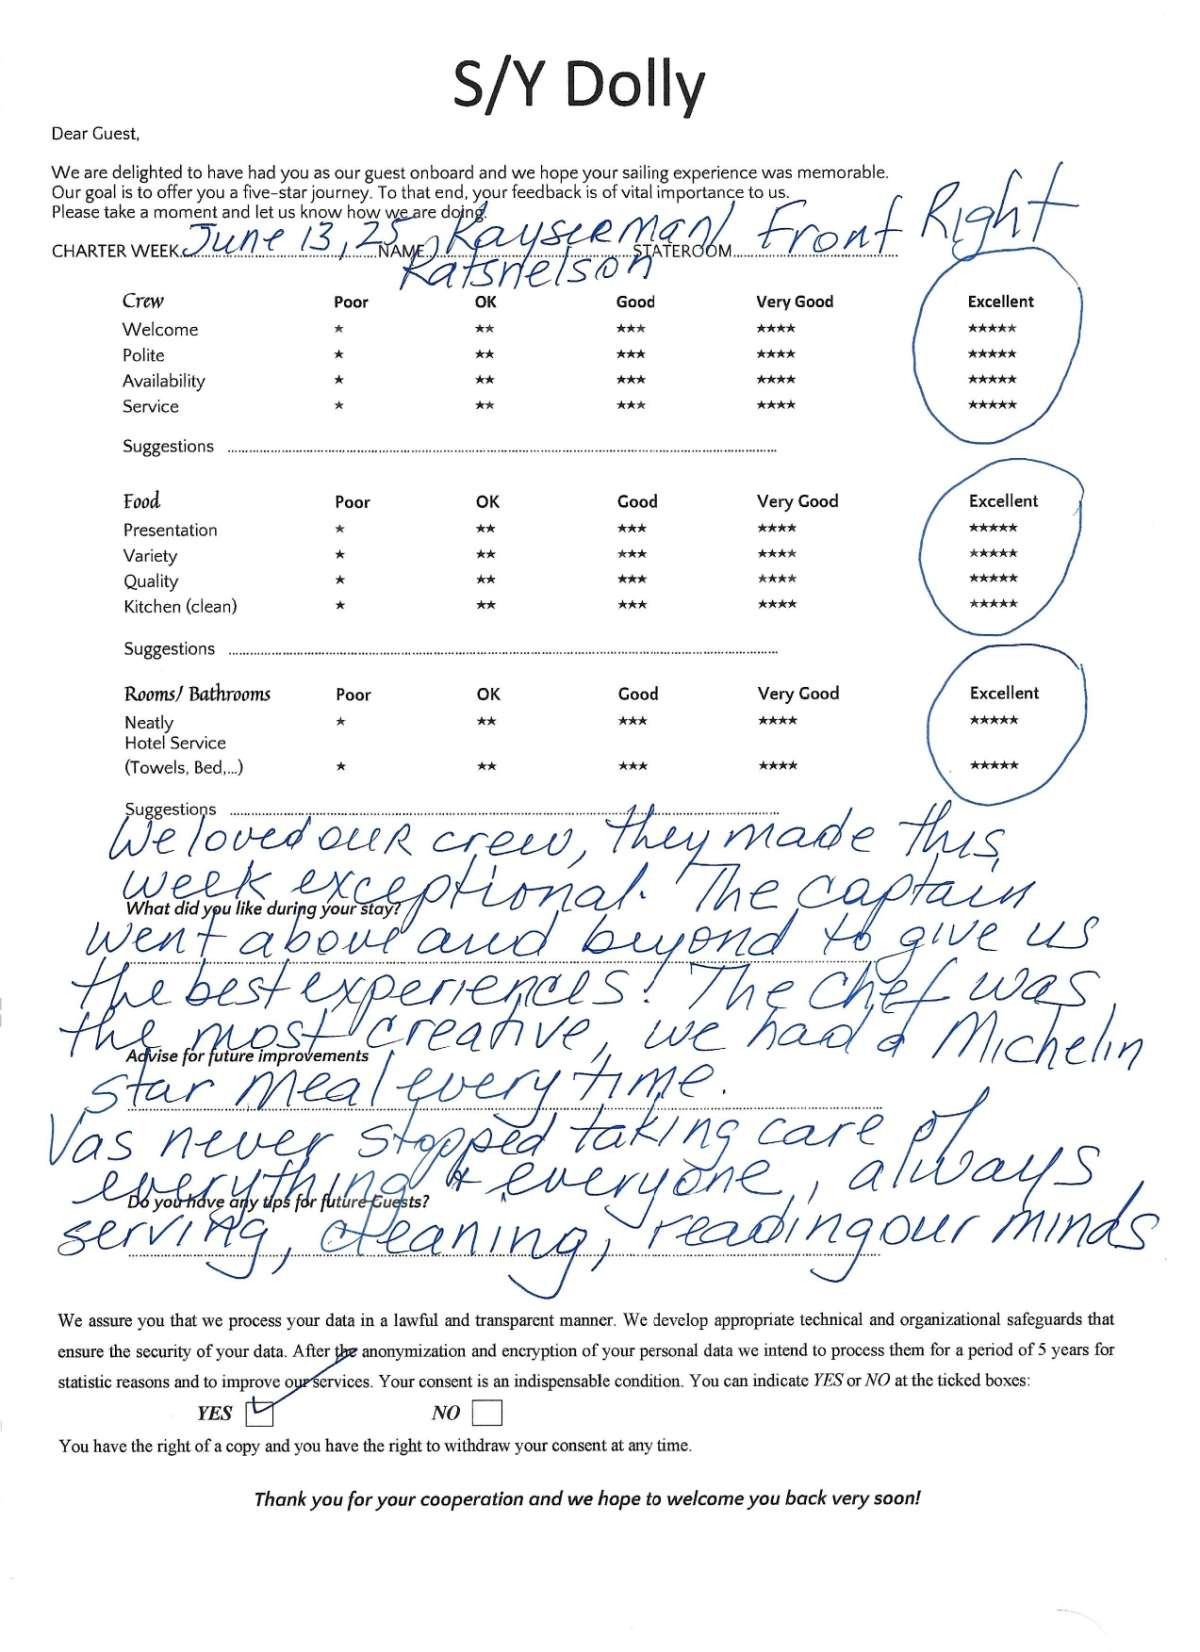 S/Y Dolly
Dear Guest,
We are delighted to have had you as our guest onboard and we hope your sailing experience was memorable.
Our goal is to offer you a five-star journey. To that end, your feedback is of vital importance to us.
Please take a moment and let us know how we are doing.
CHARTER WEEK June 13, 25 NAME Kayserman/ STATEROOM Front Right
Katsnelson
Crew Poor OK Good Very Good Excellent
Welcome ★ ★★ ★★★ ★★★★ ★★★★★
Polite ★ ★★ ★★★ ★★★★ ★★★★★
Availability ★ ★★ ★★★ ★★★★ ★★★★★
Service ★ ★★ ★★★ ★★★★ ★★★★★
Suggestions
Food Poor OK Good Very Good Excellent
Presentation ★ ★★ ★★★ ★★★★ ★★★★★
Variety ★ ★★ ★★★ ★★★★ ★★★★★
Quality ★ ★★ ★★★ ★★★★ ★★★★★
Kitchen (clean) ★ ★★ ★★★ ★★★★ ★★★★★
Suggestions
Rooms/ Bathrooms Poor OK Good Very Good Excellent
Neatly ★ ★★ ★★★ ★★★★ ★★★★★
Hotel Service
(Towels, Bed,...) ★ ★★ ★★★ ★★★★ ★★★★★
Suggestions
We loved our crew, they made this
week exceptional. The captain
What did you like during your stay?
went above and beyond to give us
the best experiences! The chef was
the most creative, we had a Michelin
Advise for future improvements
star meal every time.
Vas never stopped taking care of
everything & everyone, always
Do you have any tips for future Guests?
serving, cleaning, reading our minds
We assure you that we process your data in a lawful and transparent manner. We develop appropriate technical and organizational safeguards that
ensure the security of your data. After the anonymization and encryption of your personal data we intend to process them for a period of 5 years for
statistic reasons and to improve our services. Your consent is an indispensable condition. You can indicate YES or NO at the ticked boxes:
YES NO
You have the right of a copy and you have the right to withdraw your consent at any time.
Thank you for your cooperation and we hope to welcome you back very soon!